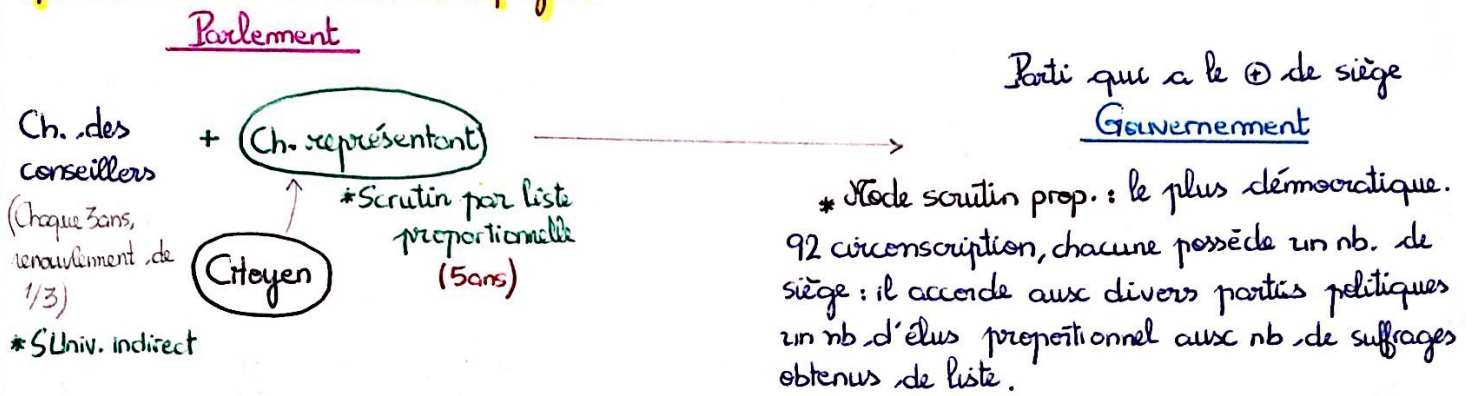 Parlement
Ch. des
conseillers
(Chaque 3ans,
renouvlement de
1/3)
*SUniv. indirect
+
Ch. représentant
*Scrutin par liste
proportionnelle
(5ans)
Citoyen
Parti qui a le ⊕ de siège
Gouvernement
* Mode scrutin prop. : le plus démocratique.
92 circonscription, chacune possède un nb. de
siège : il accorde aux divers partis politiques
un nb d'élus proportionnel aux nb de suffrages
obtenus de liste.